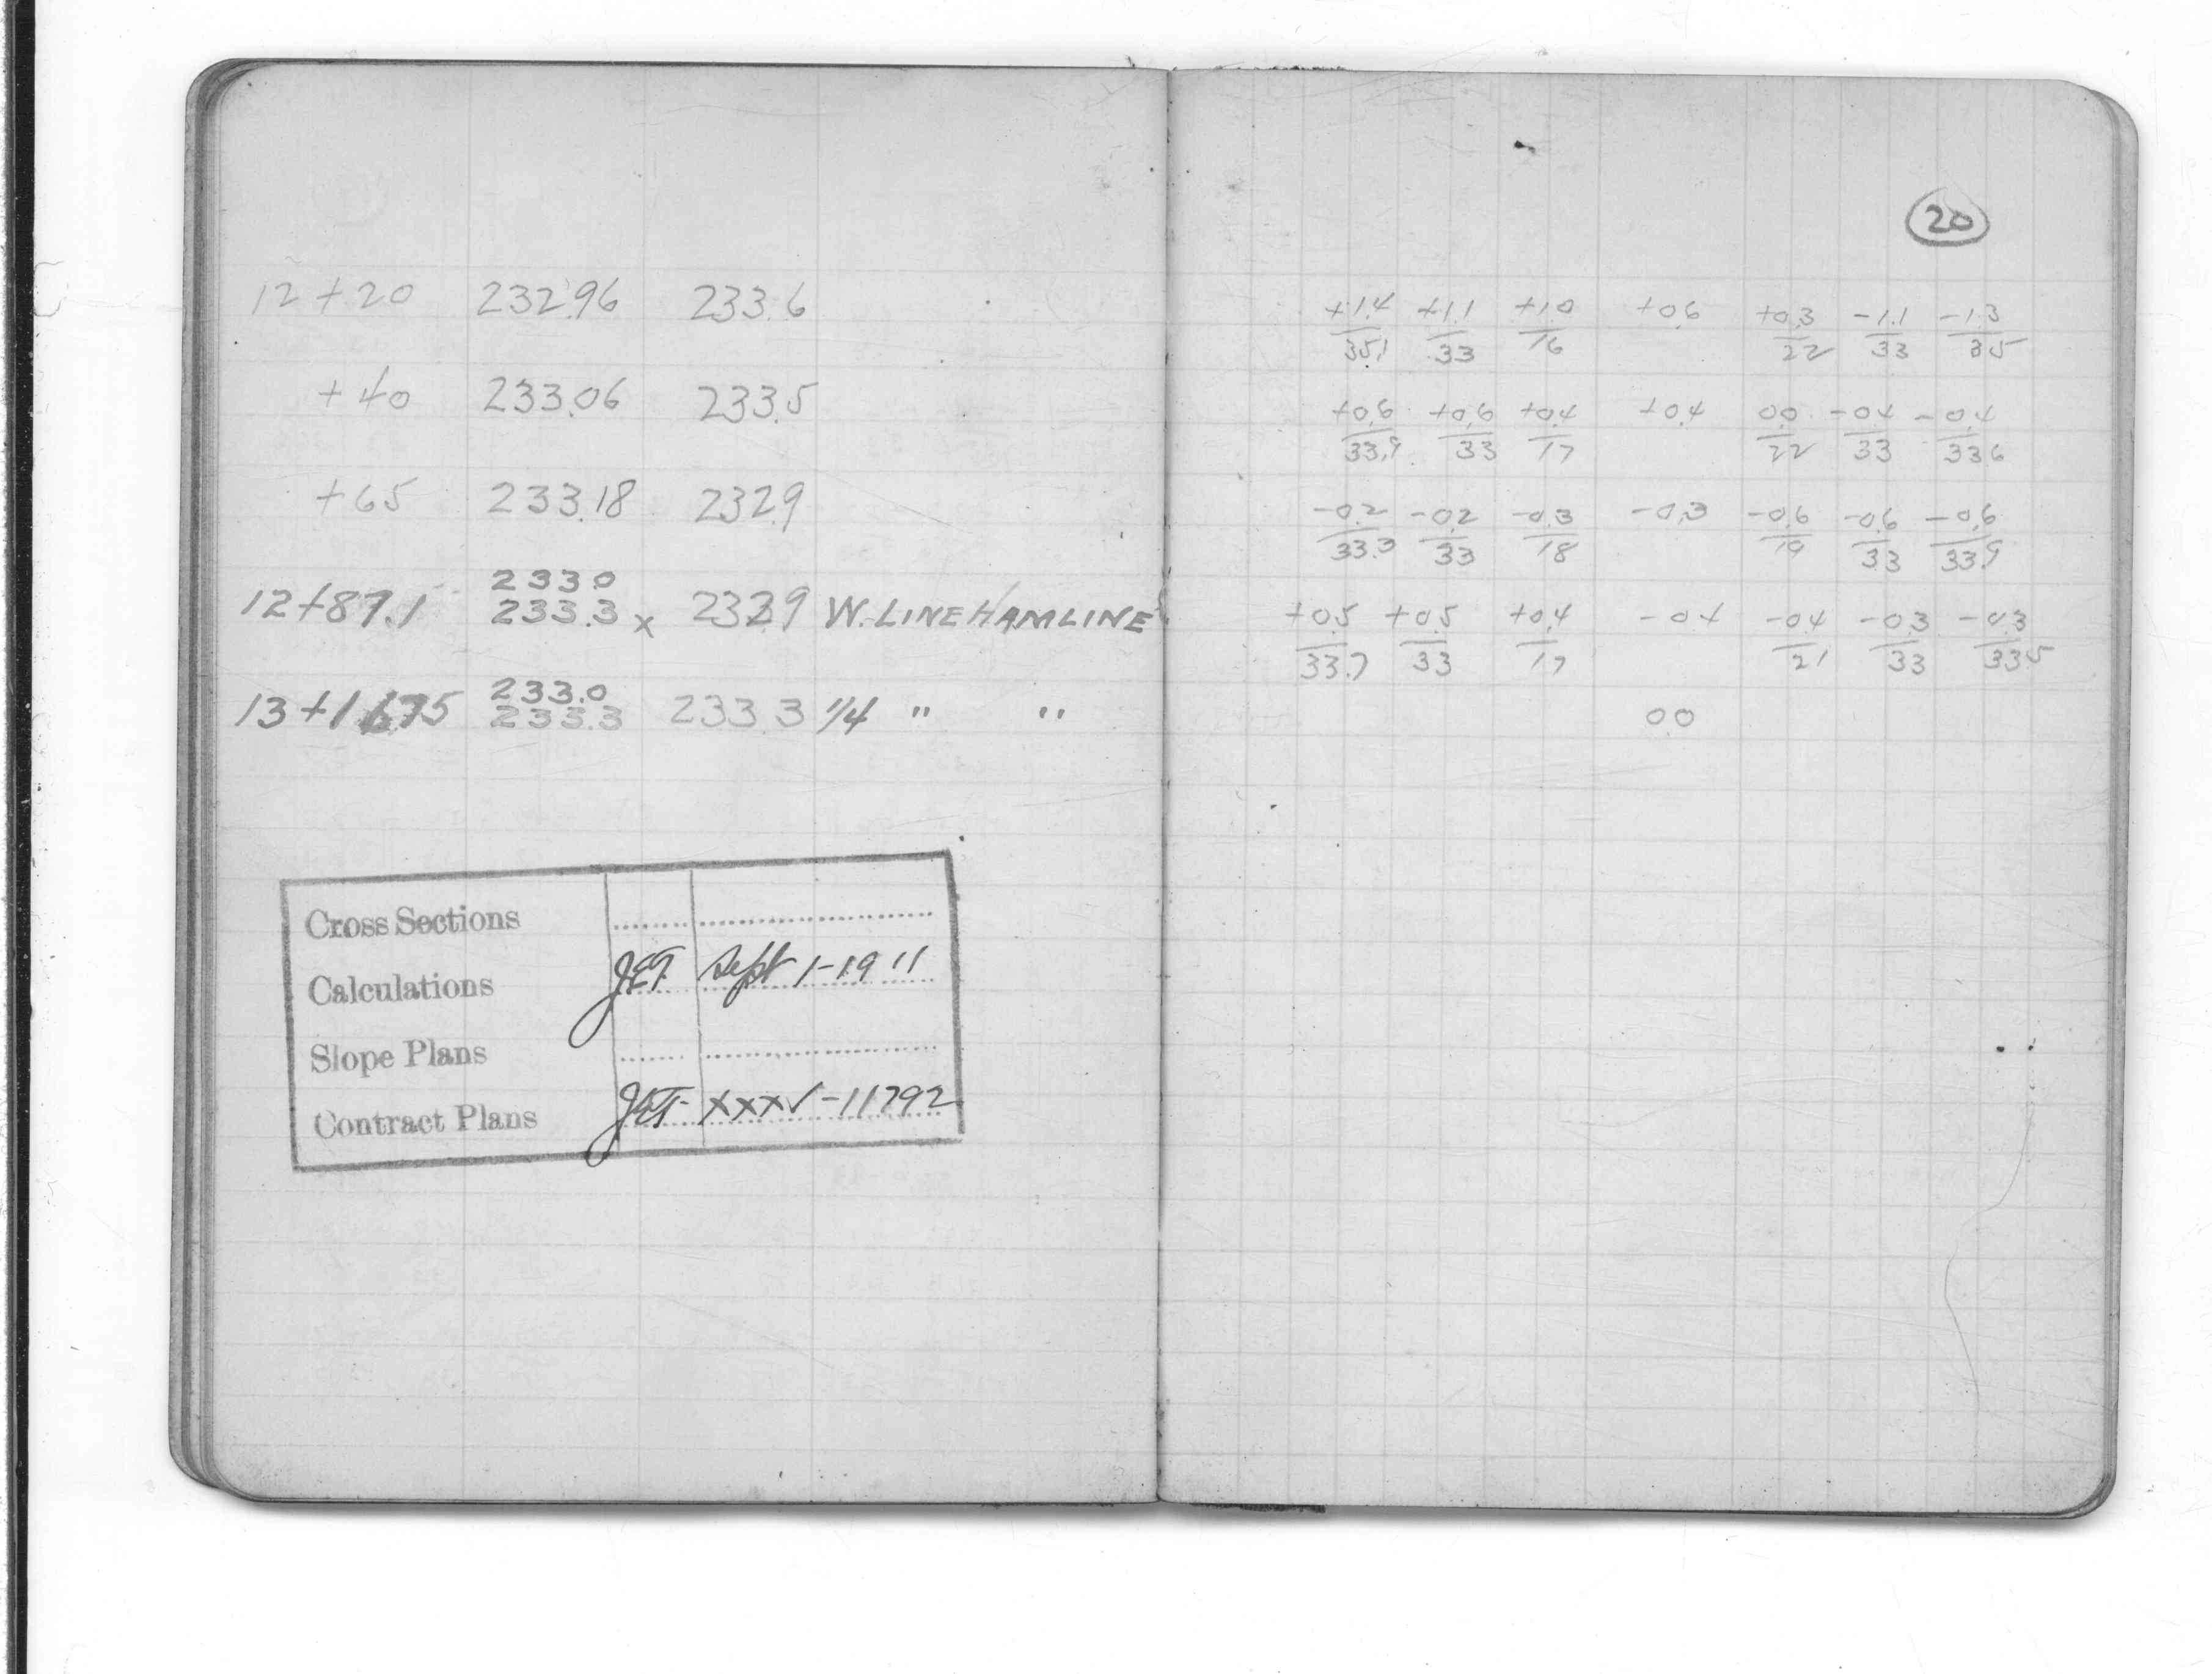 12+20 232.96 233.6
+40 233.06 233.5
+65 233.18 232.9
233 0
12+87.1 233.3 x 232.9 W. LINE HAMLINE
233.0
13+16.75 233.3 233.3 1/4 " "
Cross Sections
Calculations JET Sept 1-1911
Slope Plans
Contract Plans JET XXXV-11792
20
+1.4 +1.1 +1.0 +0.6 +0.3 -1.1 -1.3
35.1 33 16 22 33 35
+0.6 +0.6 +0.4 +0.4 0.0 -0.4 -0.4
33.9 33 17 22 33 33 6
-0.2 -0.2 -0.3 -0.3 -0.6 -0.6 -0.6
33.3 33 18 19 33 33.9
+0.5 +0.5 +0.4 -0.4 -0.4 -0.3 -0.3
33.7 33 17 21 33 33.5
0.0